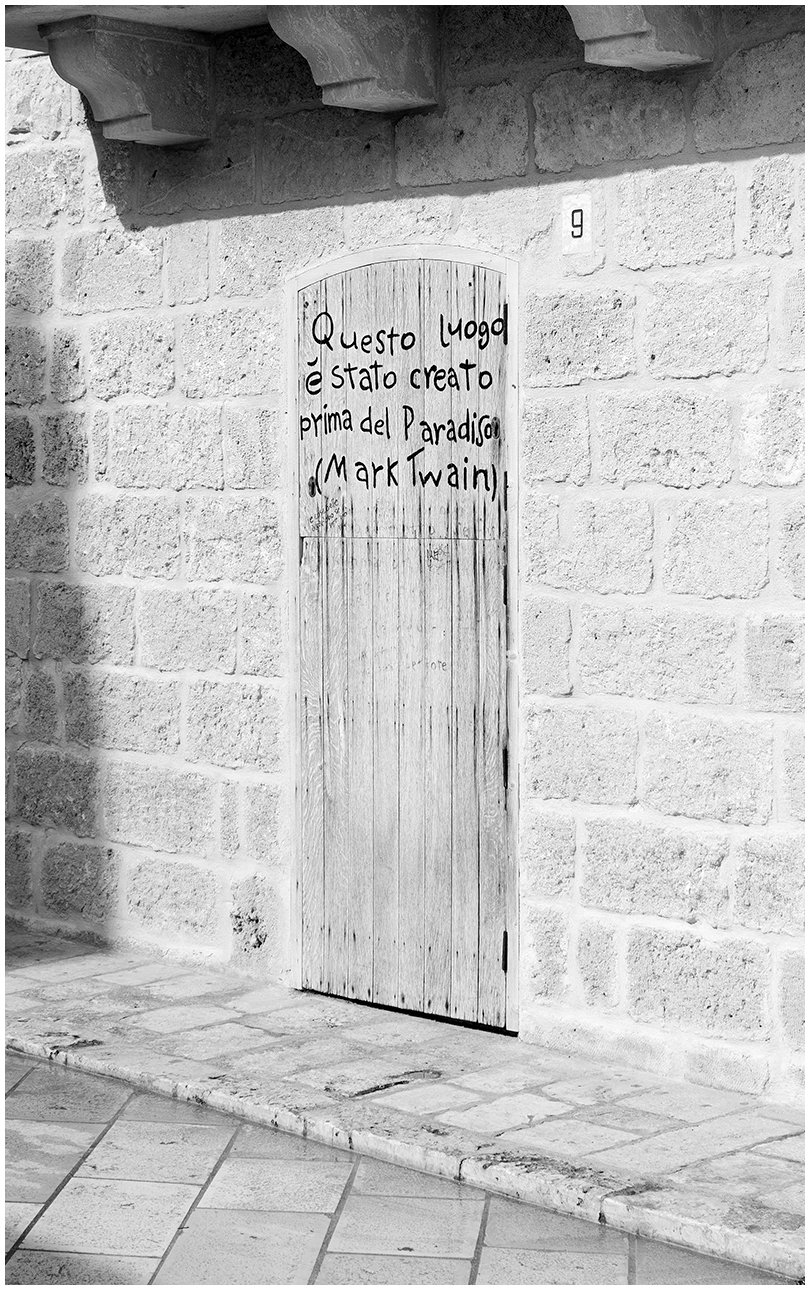 9
Questo luogo
è stato creato
prima del Paradiso
(Mark Twain)